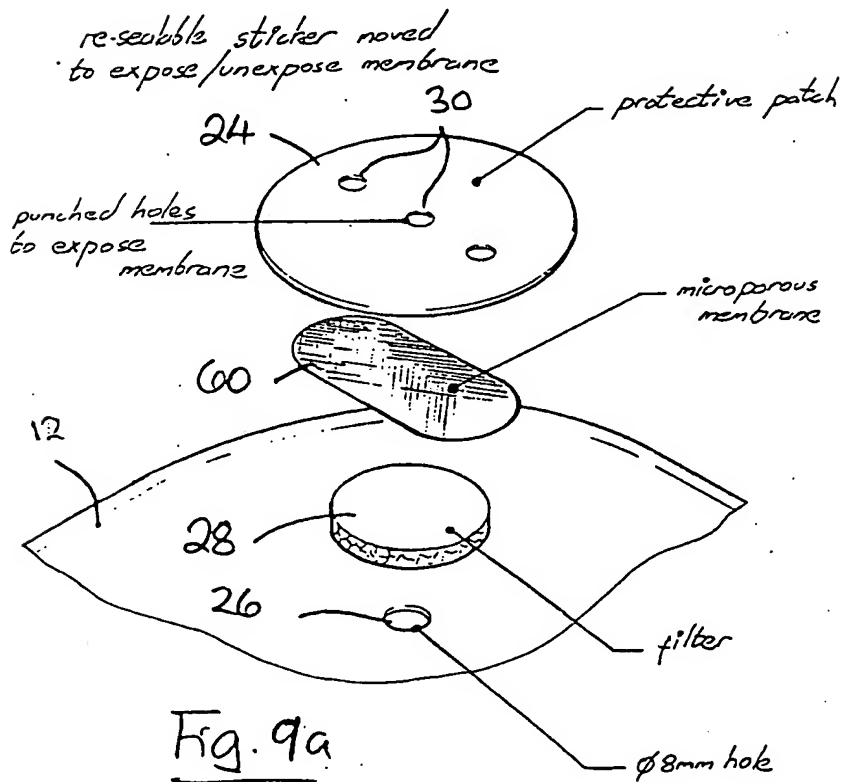 re-sealable sticker moved
to expose/unexpose membrane
30
24
protective patch
punched holes
to expose
membrane
microporous
membrane
60
12
28
26
filter
Fig. 9a
ϕ8mm hole